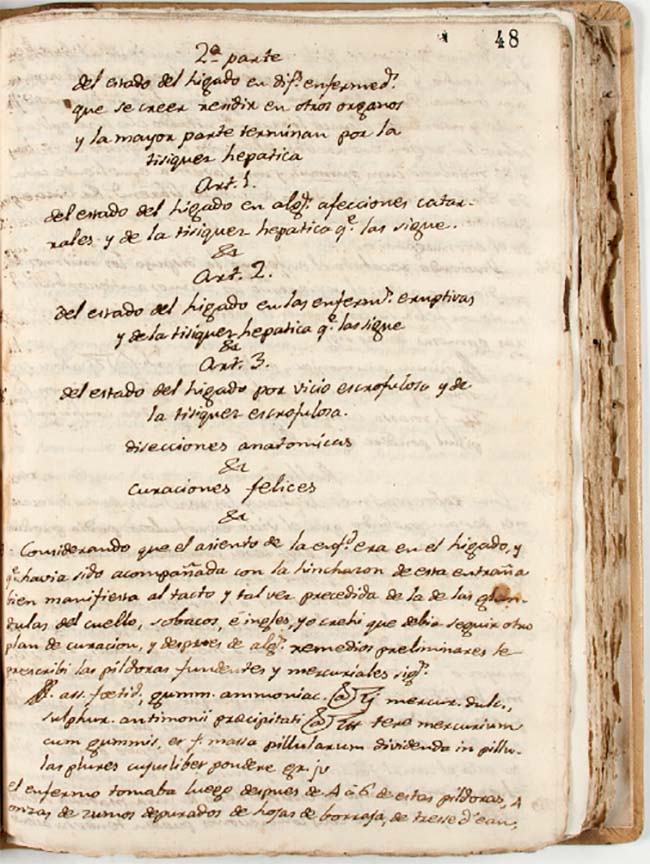 48
2ª parte
del estado del higado en dif.s enfermed.s
que se creer rendir en otros organos
y la mayor parte terminan por la
tisiquez hepatica
Art. 1.
del estado del higado en alg.s afecciones catar-
rales y de la tisiquez hepatica q.e las sigue.
&a
Art. 2.
del estado del higado en las enferm.s eruptivas
y de la tisiquez hepatica q.e las sigue
&a
Art. 3.
del estado del higado por vicio escrofuloso y de
la tisiquez escrofulosa.
disecciones anatomicas
&a
curaciones felices
&a
Considerando que el asiento de la enf.d era en el higado, y
q.e havia sido acompañada con la hinchazon de esta entraña
bien manifiesta al tacto y tal vez precedida de la de las glan-
dulas del cuello, sobacos, é ingles, yo crehi que debia seguir otro
plan de curacion, y despues de alg.s remedios preliminares le
prescribi las pildoras fundentes y mercuriales sig.s
ass. foetid, gumm. ammoniac. mercur. dulc.,
sulphur. antimonii precipitati tere mercurium
cum gummis, et f. massa pillularum dividenda in pillu-
las plures cujusliber pondere gr. jv
el enfermo tomaba luego despues de 4 à 6 de estas pildoras, 4
onzas de zumos depurados de hojas de borraja, de